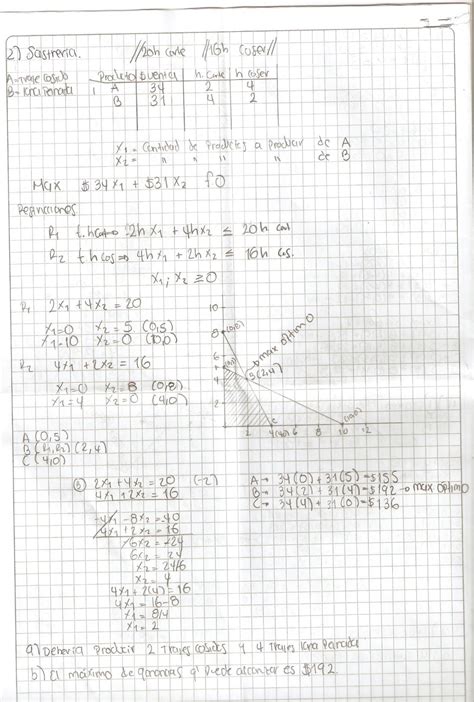 2) Sastreria. //20h corte //16h coser//
A = Traje Cosido Producto $ venta h. corte h coser
B = lana Peinada 1 A 34 2 4
B 31 4 2
X1 = Cantidad de Productos a Producir de A
X2 = " " " " de B
Max $34X1 + $31X2 fo
Restricciones
R1 t.h 2hX1 + 4hX2 ≤ 20h
R2 t h cos => 4hX1 + 2hX2 ≤ 16h cos.
X1; X2 ≥ 0
R1 2X1 + 4X2 = 20
X1=0 X2=5 (0,5)
X1=10 X2=0 (10,0)
R2 4X1 + 2X2 = 16
X1=0 X2=8 (0,8)
X1=4 X2=0 (4,0)
10
8
6
4
2
max optimo
B(2,4)
2 4 6 8 10 12
A (0,5)
B (R1,R2) (2,4)
C (4,0)
2X1 + 4X2 = 20 (-2)
4X1 + 2X2 = 16
-4X1 - 8X2 = -40
4X1 + 2X2 = 16
-6X2 = -24
6X2 = 24
X2 = 24/6
X2 = 4
4X1 + 2(4) = 16
4X1 = 16-8
X1 = 8/4
X1 = 2
A → 34(0) + 31(5) = $155
B → 34(2) + 31(4) = $192 → max optimo
C → 34(4) + 31(0) = $136
a) Deberia Producir 2 Trajes Cosidos y 4 Trajes lana Peinada
b) El máximo de ganancias q' Puede alcanzar es $192.